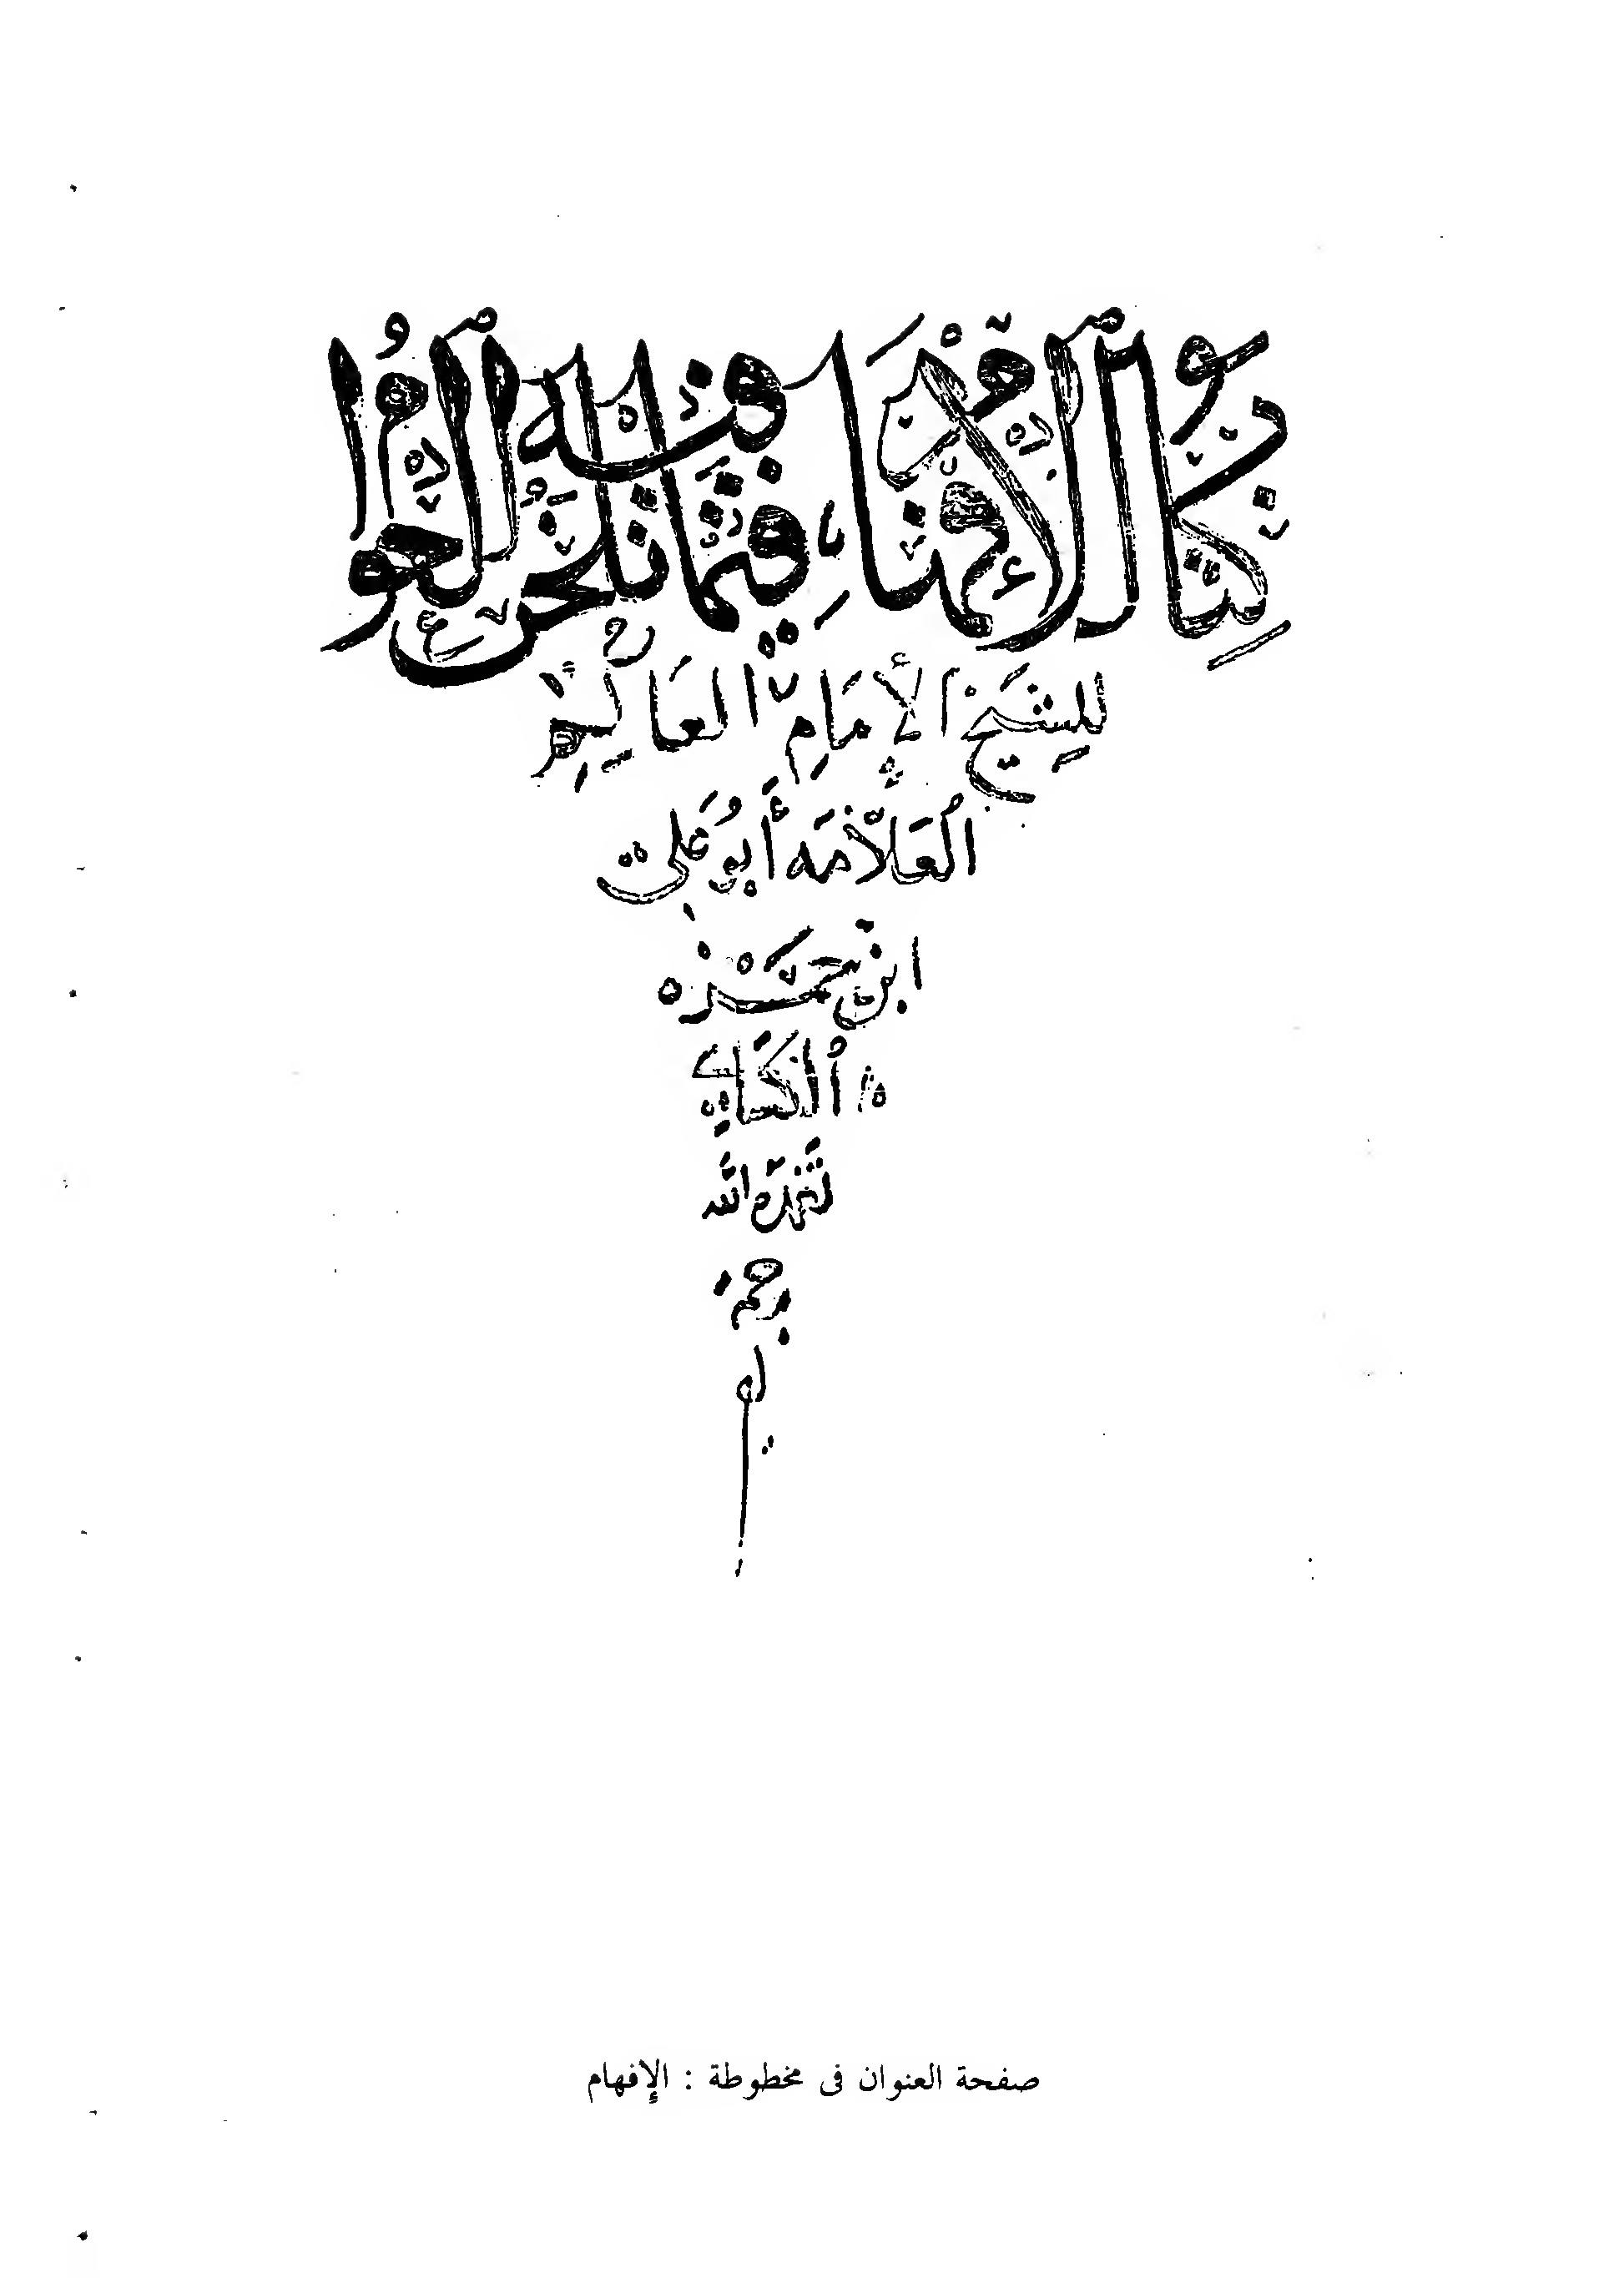 كتاب الإفهام فيما تلحن فيه العوام
للشيخ الإمام العالم
العلامة أبو علي
ابن حمزه
الكسائي
تغمده الله
برحمته
صفحة العنوان فى مخطوطة : الإفهام